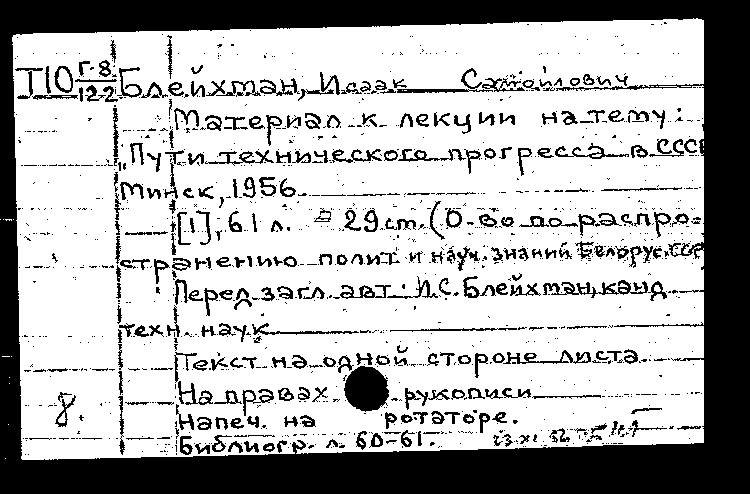 Т10 Г-8 Блейхман, Исаак Самойлович
122
Материал к лекции на тему:
"Пути технического прогресса в СССР
Минск, 1956.
[1], 61 л. 29 см. (О-во по распро-
странению полит и науч. знаний Белорус. ССР
Перед загл. авт: И.С. Блейхман, канд.
техн. наук
Текст на одной стороне листа
На правах рукописи
8. Напеч. на ротаторе.
Библиогр. л. 60-61.